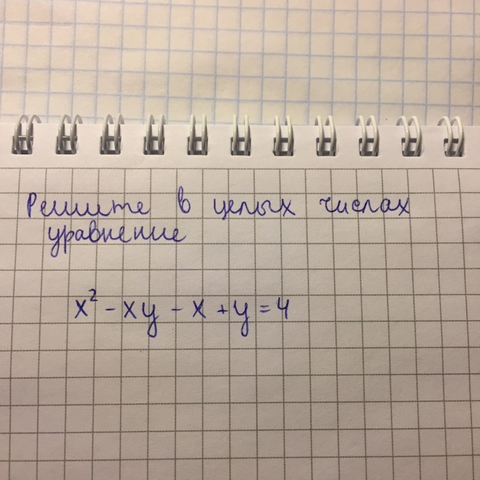 Решите в целых числах
уравнение
x² - xy - x + y = 4